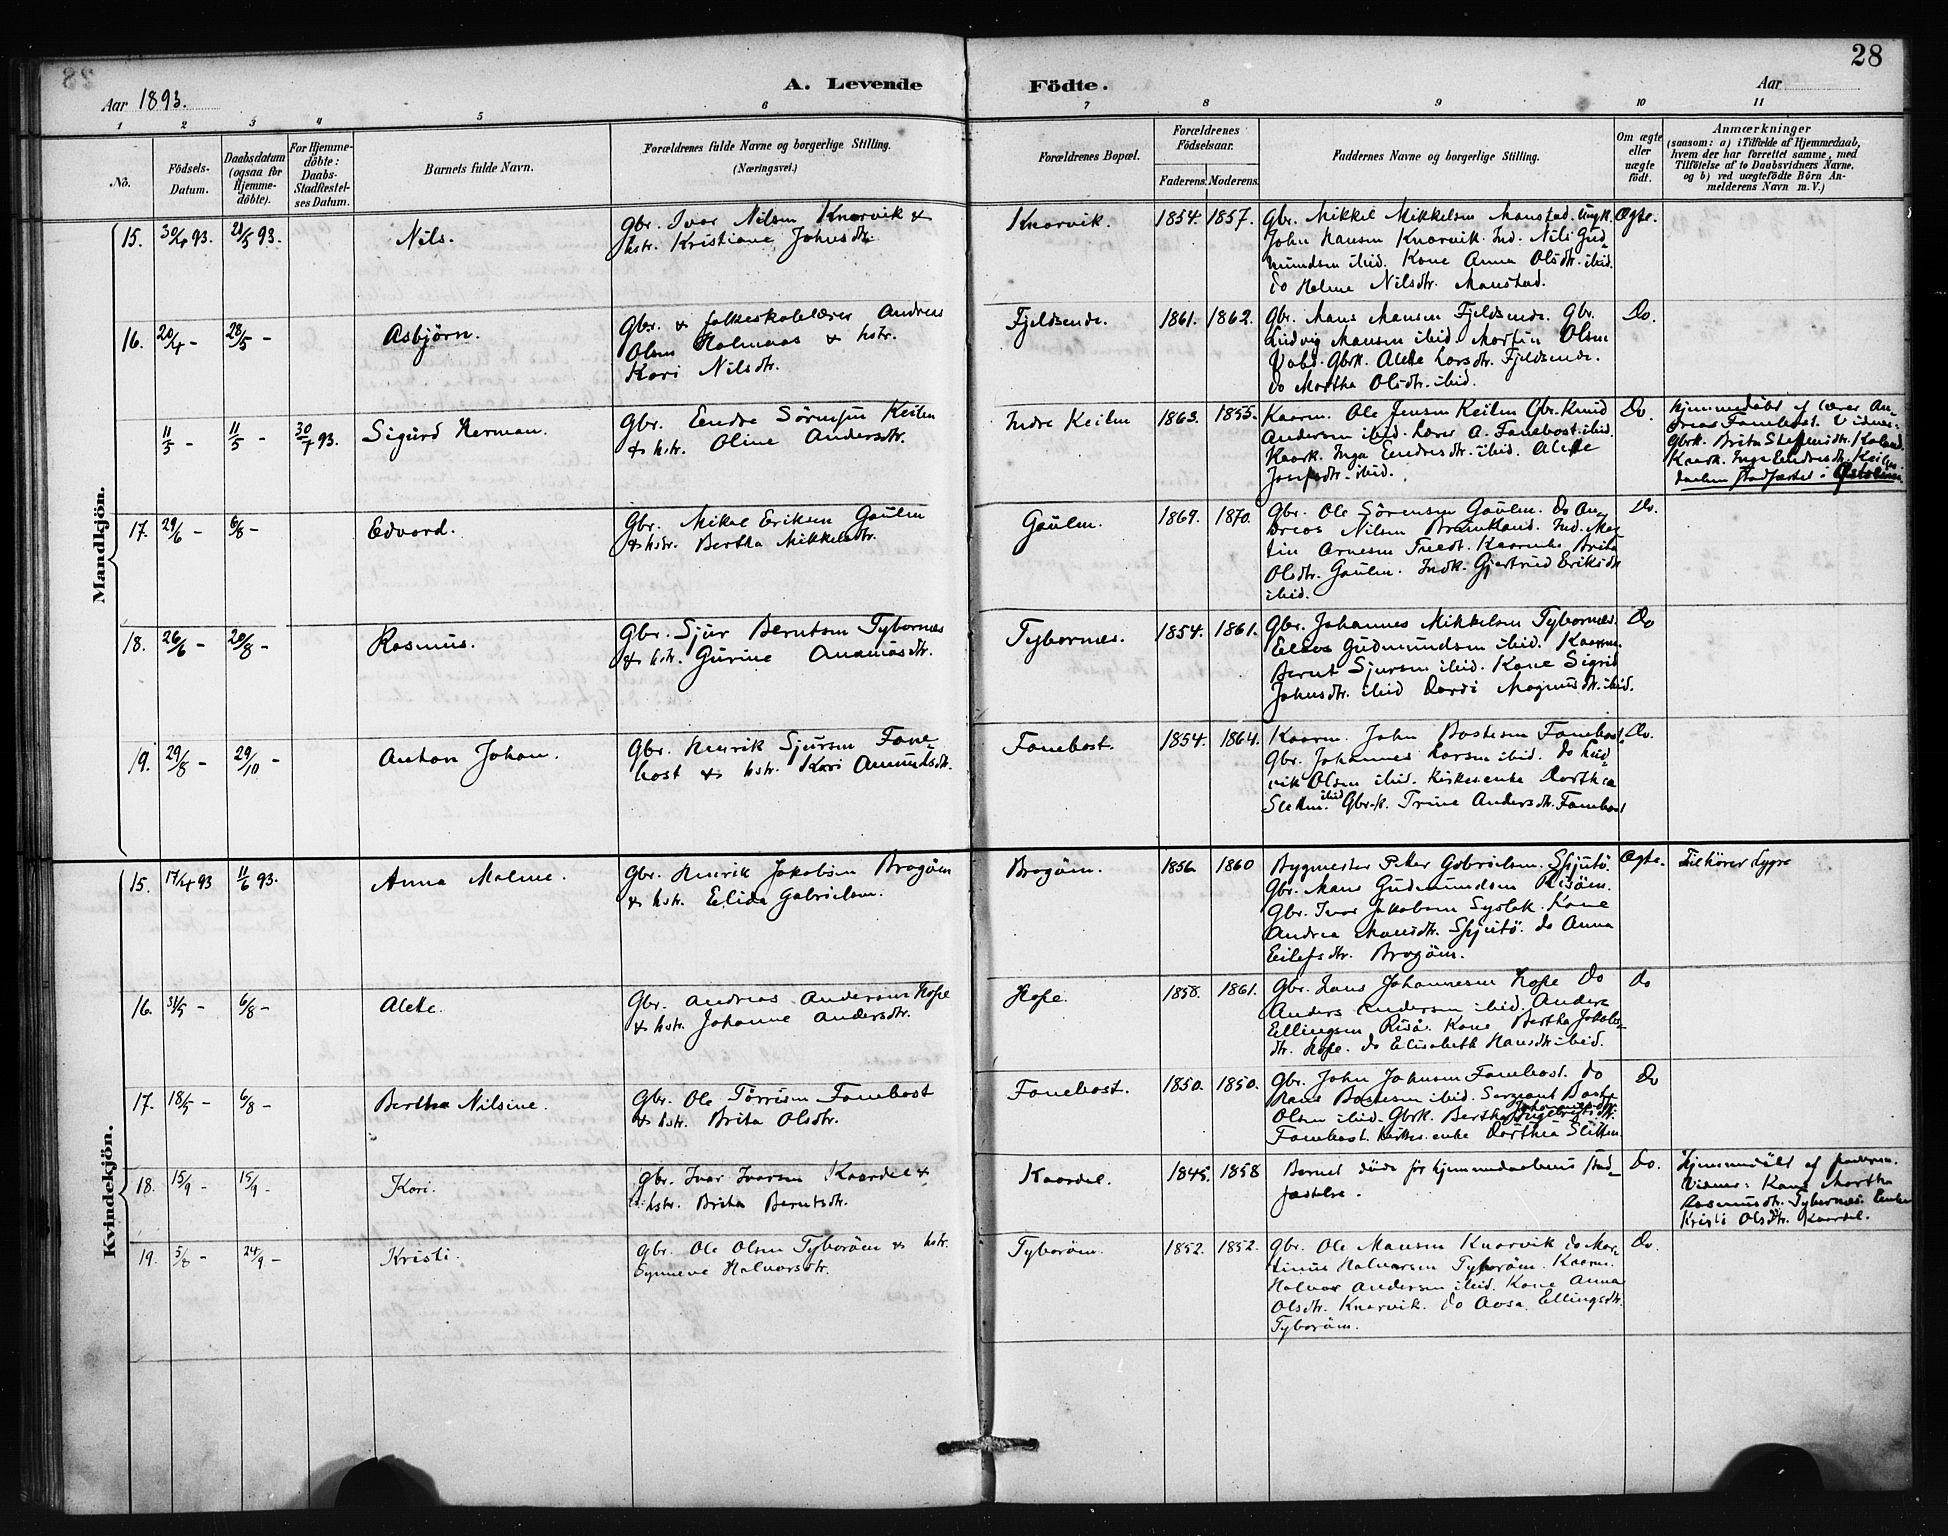 28
A. Levende Födte.
Aar 1893.
Aar
1 2 3 4 5 6 7 8 9 10 11
No.
Födsels-Datum.
Daabsdatum (ogsaa for Hjemmedöbte).
For Hjemmedöbte: Daabs-Stadfæstelses Datum.
Barnets fulde Navn.
Forældrenes fulde Navne og borgerlige Stilling.
(Næringsvei.)
Forældrenes Bopæl.
Forældrenes Födselsaar.
Faderens. Moderens.
Faddernes Navne og borgerlige Stilling.
Om ægte eller uægte födt.
Anmærkninger
(saasom: a) i Tilfælde af Hjemmedaab,
hvem der har forrettet samme, med
Tilföielse af to Daabsvidners Navne.
og b) ved uægtefödte Börn An-
melderens Navn m. V.)
Mandkjön.
15. 30/4 93. 21/5 93. Nils.
Gbr. Ivar Nilsen Knarvik &
hstr. Kristiane Johnsdtr.
Knarvik. 1854. 1857.
Gbr. Mikkel Mikkelsen Manstad. Ungk.
John Hansen Knarvik. Ind. Nils Gud-
mundsen ibid. Kone Anna Olsdtr. ibid.
do Helene Nilsdtr. Manstad.
Ægte.
16. 20/4 - 28/5 - Asbjörn.
Gbr. & folkeskolelærer Andreas
Olsen Halmaas & hstr.
Kari Nilsdtr.
Fjeldsende. 1861. 1862.
Gbr. Mans Mansen Fjeldsende. Gbr.
Ludvig Mansen ibid. Martin Olsen
Gbrk. Alette Larsdtr. Fjeldsende.
do Martha Olsdtr. ibid.
Do.
11/5 - 11/5 - 30/7 93. Sigurd Herman.
Gbr. Eendre Sörensen Keilen
& hstr. Oline Andersdtr.
Indre Keilen 1863. 1855.
Kaarm. Ole Jensen Keilen Gbr. Knud
Andersen ibid. Lærer A. Fanebost ibid.
Kaark. Inga Eendresdtr. ibid. Alette
Josefsdtr. ibid.
Do.
Hjemmedöbt af lærer An-
dreas Fanebost. Vidner:
Gbrk. Brita Steffensdtr.
Kaark. Inga Eendresdtr. Keilen.
Daaben stadfæstet i
17. 29/6 - 6/8 - Edvard.
Gbr. Mikal Eriksen Gaulen
& hstr. Bertha Mikkelsdtr.
Gaulen. 1869. 1870.
Gbr. Ole Sörensen Gaulen. do An-
dreas Nilsen Bruntland. Ind. Mar-
tin Arnesen Tvedt. Kaarenke Brita
Olsdtr. Gaulen. Indk. Gjertrud Eriksdtr
ibid.
Do.
18. 26/6 - 20/8 - Rasmus.
Gbr. Sjur Berntsen Tybornæs
& hstr. Gurine Ananiasdtr.
Tybornæs. 1854. 1861.
Gbr. Johannes Mikkelsen Tybornæs.
Elias Gudmundsen ibid. Kaarm.
Bernt Sjursen ibid. Kone Sigrid
Johnsdtr. ibid Dordi Magnusdtr. ibid.
Do
19. 29/8 - 29/10 - Anton Johan.
Gbr. Henrik Sjursen Fane-
bost & hstr. Kari Amundsdtr.
Fanebost. 1854. 1864.
Kaarm. John Bostesen Fanebost.
Gbr. Johannes Larsen ibid. do Lud-
vik Olsen ibid. Kirkes. enke Dorthea
Sletten. ibid Gbr.k. Trine Andersdtr. Fanebost
Do.
Kvindekjön.
15. 17/4 93 11/6 93. Anna Malene.
Gbr. Henrik Jakobsen Brogöen
& hstr. Elida Gabrielsen.
Brogöen. 1856. 1860
Bygmester Peter Gabrielsen. Skjutö.
Gbr. Mans Gudmundsen Risöen.
Gbr. Ivar Jakobsen Syslak. Kone
Andrea Mansdtr. Skjutö. do Anna
Eilefsdtr. Brogöen.
Ægte.
Tilhörer Lygre
16. 31/5 - 6/8 - Alette.
Gbr. Andreas Andersen Hope
& hstr. Johanne Andersdtr.
Hope. 1858. 1861.
Gbr. Hans Johannesen Hope do
Anders Andersen ibid. Anders
Ellingsen Risö. Kone Bertha Jakobs-
dtr. Hope. do Elisabeth Hansdtr ibid.
do
17. 18/5 - 6/8 - Bertha Nilsine.
Gbr. Ole Törrisen Fanebost
& hstr. Brita Olsdtr.
Fanebost. 1850. 1850.
Gbr. John Johnsen Fanebost. do
Hans Bostesen ibid. Sergeant Baste
Olsen ibid. Gbrk. Bertha Johannesdtr.
Fanebost. Kirkes. enke Dorthea Sletten.
Do
18. 15/9 - 15/9 - Kari.
Gbr. Ivar Ivarsen Kaardal &
hstr. Brita Berntsdtr.
Kaardal. 1845. 1858
Barnet döde för hjemmedaabens stad-
fæstelse.
Do.
Hjemmedöbt af faderen.
Vidner: Kone Martha
Rasmusdtr. Tybornæs. Enke
Kristi Olsdtr. Kaardal.
19. 5/8 - 24/9 - Kristi.
Gbr. Ole Olsen Tyboröen & hstr.
Synneve Halvorsdtr.
Tyboröen. 1852. 1852.
Gbr. Ole Mansen Knarvik do Mar-
tinus Halvorsen Tyboröen. Kaarm.
Halvor Andersen ibid. Kone Anna
Olsdtr. Knarvik. do Aasa Ellingsdtr.
Tyboröen.
Do.